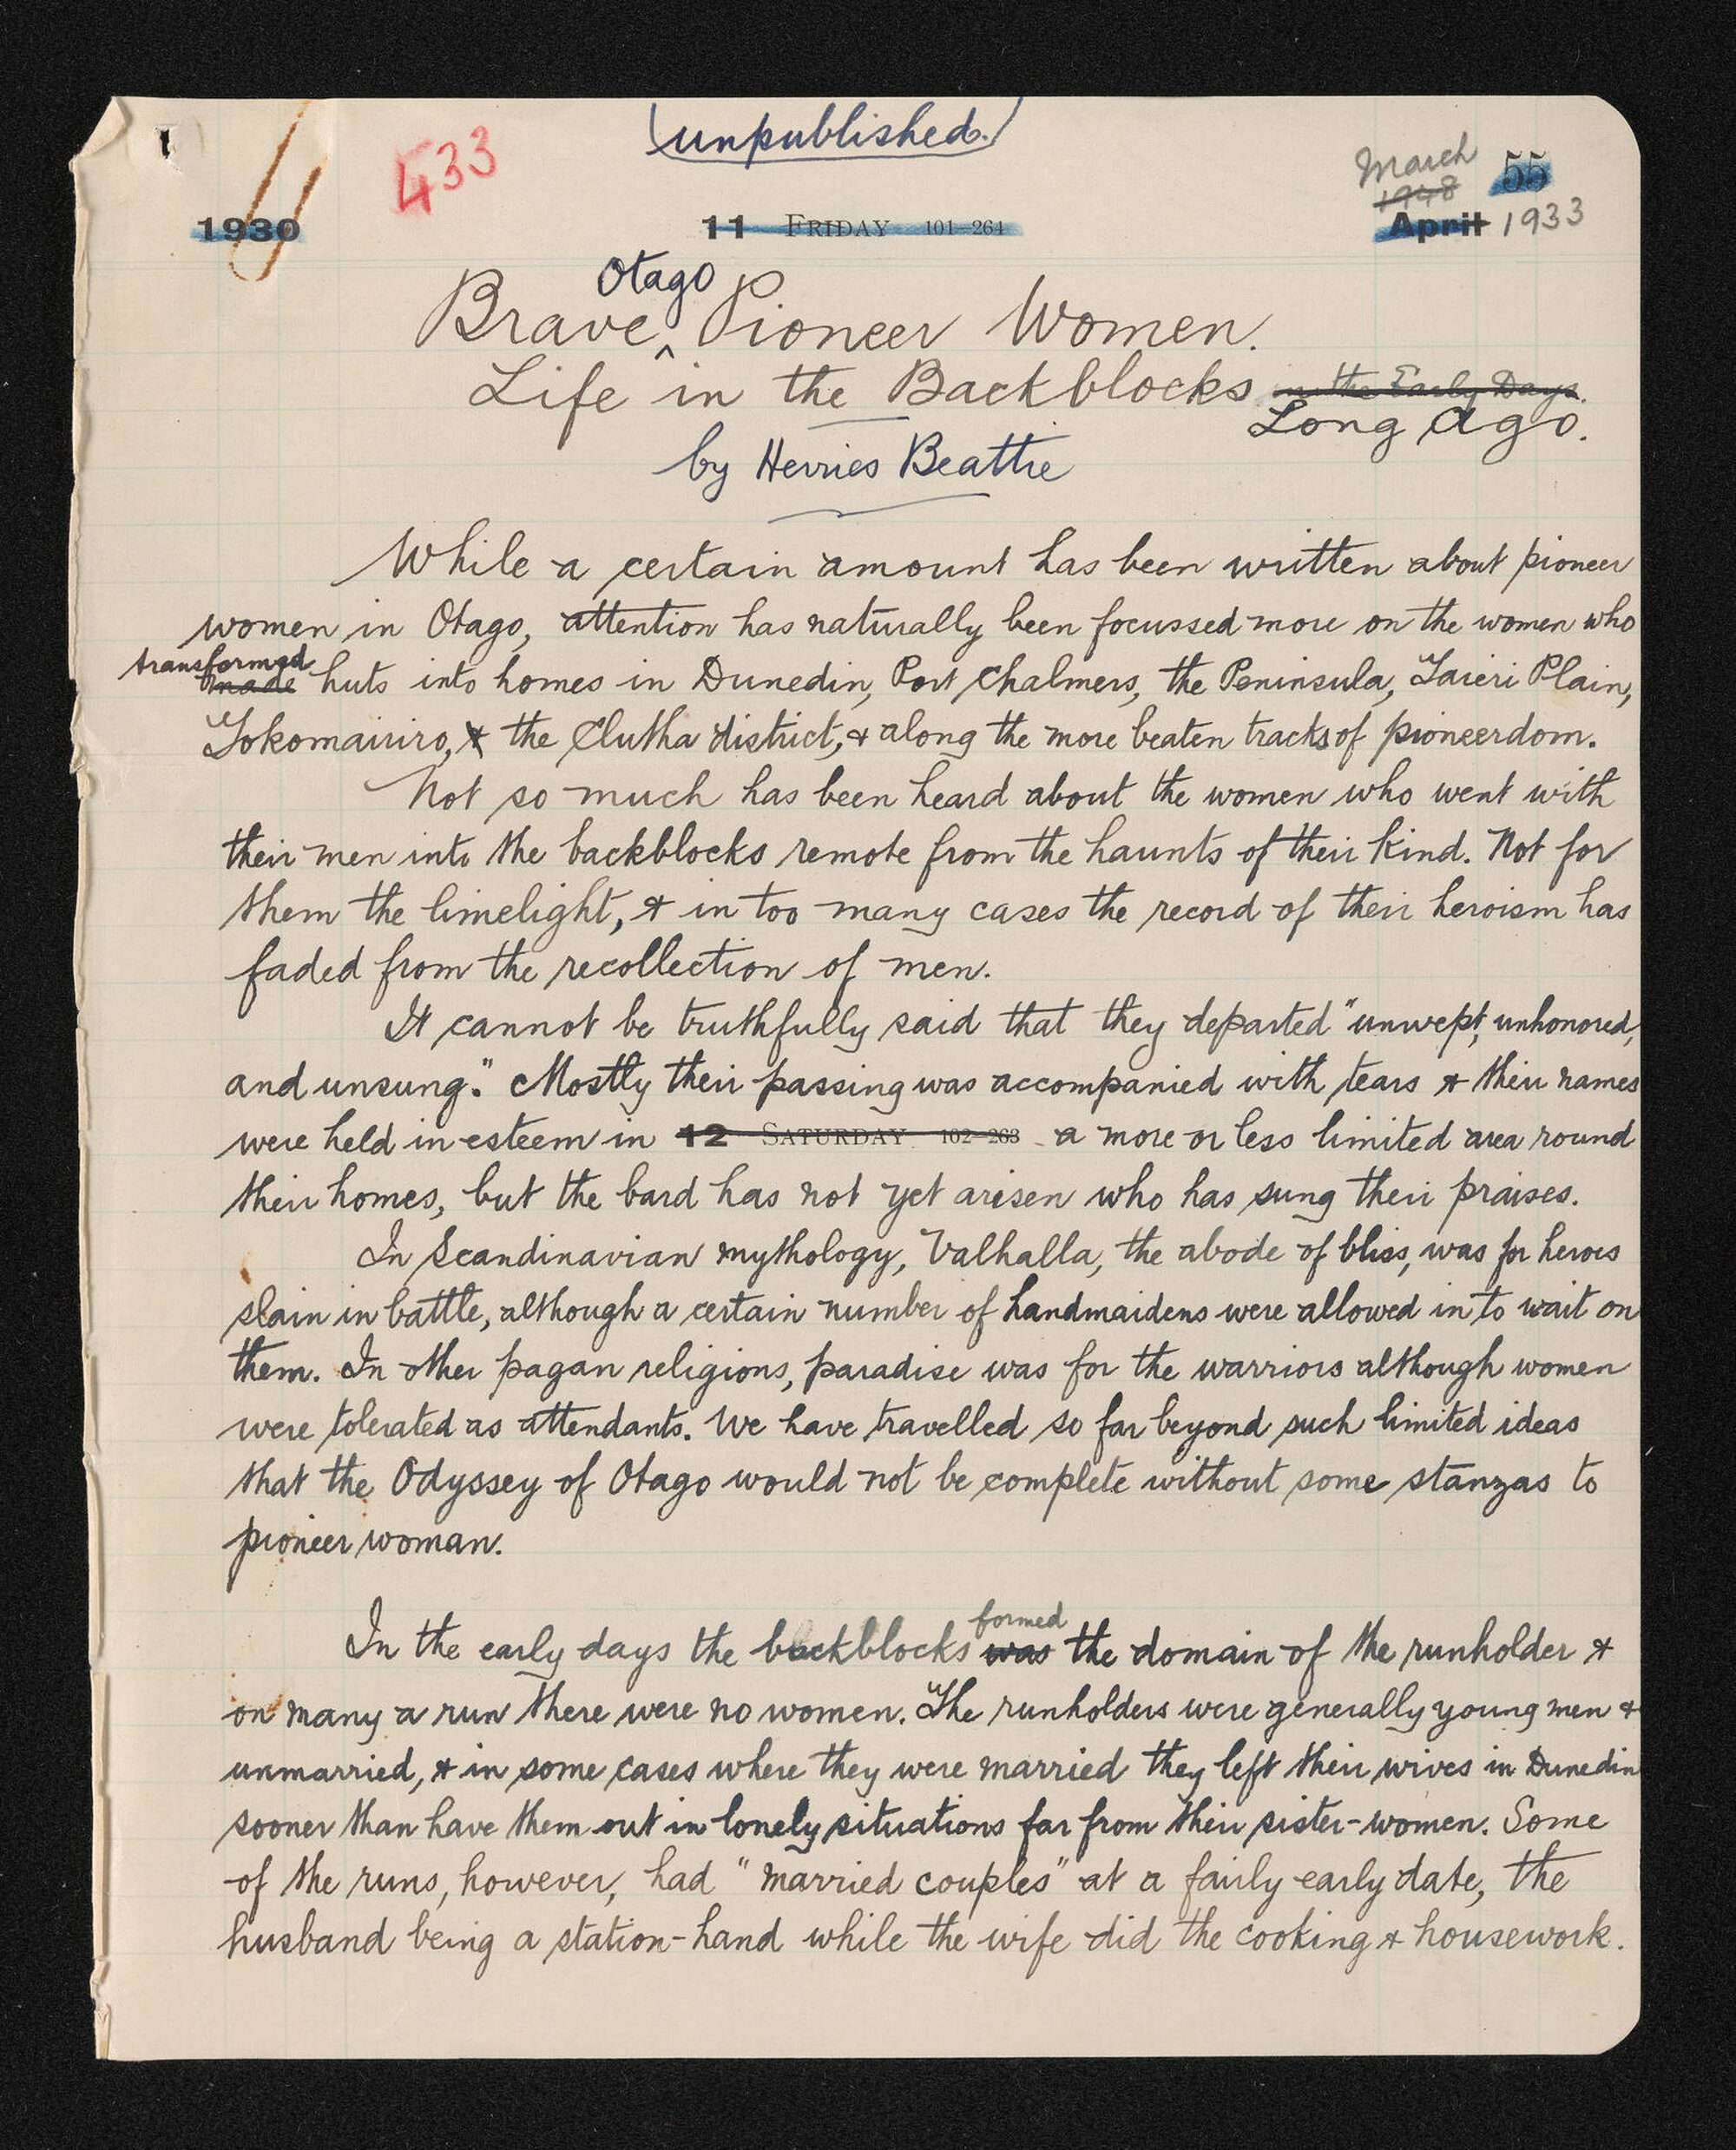 (unpublished.)
433
March
1948
55
1930
11 FRIDAY 101-264
April 1933
Otago
Brave ^ Pioneer Women.
Life in the Backblocks in the Early Days.
Long Ago.
by Herries Beattie
While a certain amount has been written about pioneer
women in Otago, attention has naturally been focussed more on the women who
transformed
made huts into homes in Dunedin, Port Chalmers, the Peninsula, Taieri Plain,
Tokomairiro, & the Clutha district, & along the more beaten tracks of pioneerdom.
Not so much has been heard about the women who went with
their men into the backblocks remote from the haunts of their kind. Not for
them the limelight, & in too many cases the record of their heroism has
faded from the recollection of men.
It cannot be truthfully said that they departed "unwept, unhonored,
and unsung." Mostly their passing was accompanied with tears & their names
were held in esteem in 12 SATURDAY 102-263 a more or less limited area round
their homes, but the bard has not yet arisen who has sung their praises.
In Scandinavian mythology, Valhalla, the abode of bliss, was for heroes
slain in battle, although a certain number of handmaidens were allowed in to wait on
them. In other pagan religions, paradise was for the warriors although women
were tolerated as attendants. We have travelled so far beyond such limited ideas
that the Odyssey of Otago would not be complete without some stanzas to
pioneer woman.
formed
In the early days the backblocks was the domain of the runholder &
on many a run there were no women. The runholders were generally young men &
unmarried, & in some cases where they were married they left their wives in Dunedin
sooner than have them out in lonely situations far from their sister-women. Some
of the runs, however, had "married couples" at a fairly early date, the
husband being a station-hand while the wife did the cooking & housework.